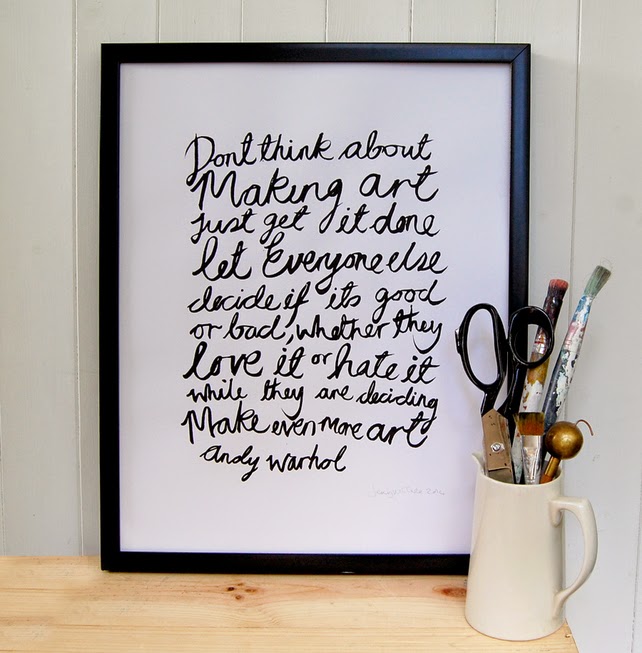 Dont think about
Making art
just get it done
let Everyone else
decide if its good
or bad, whether they
love it or hate it
while they are deciding
Make even more art
andy warhol